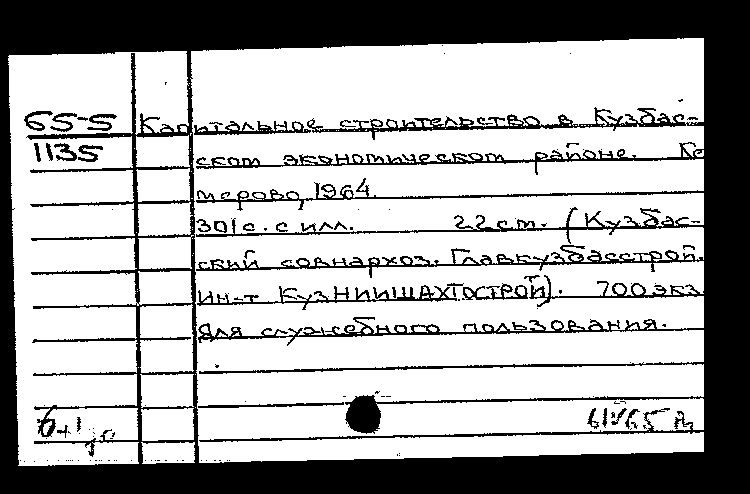 65-5 Капитальное строительство в Кузбас-
1135 ском экономическом районе. Ке
мерово, 1964.
301 с. с илл. 22 см. (Кузбас-
ский совнархоз. Главкузбасстрой.
Ин-т КузНИИШАХТОСТРОЙ). 700 экз.
Для служебного пользования.